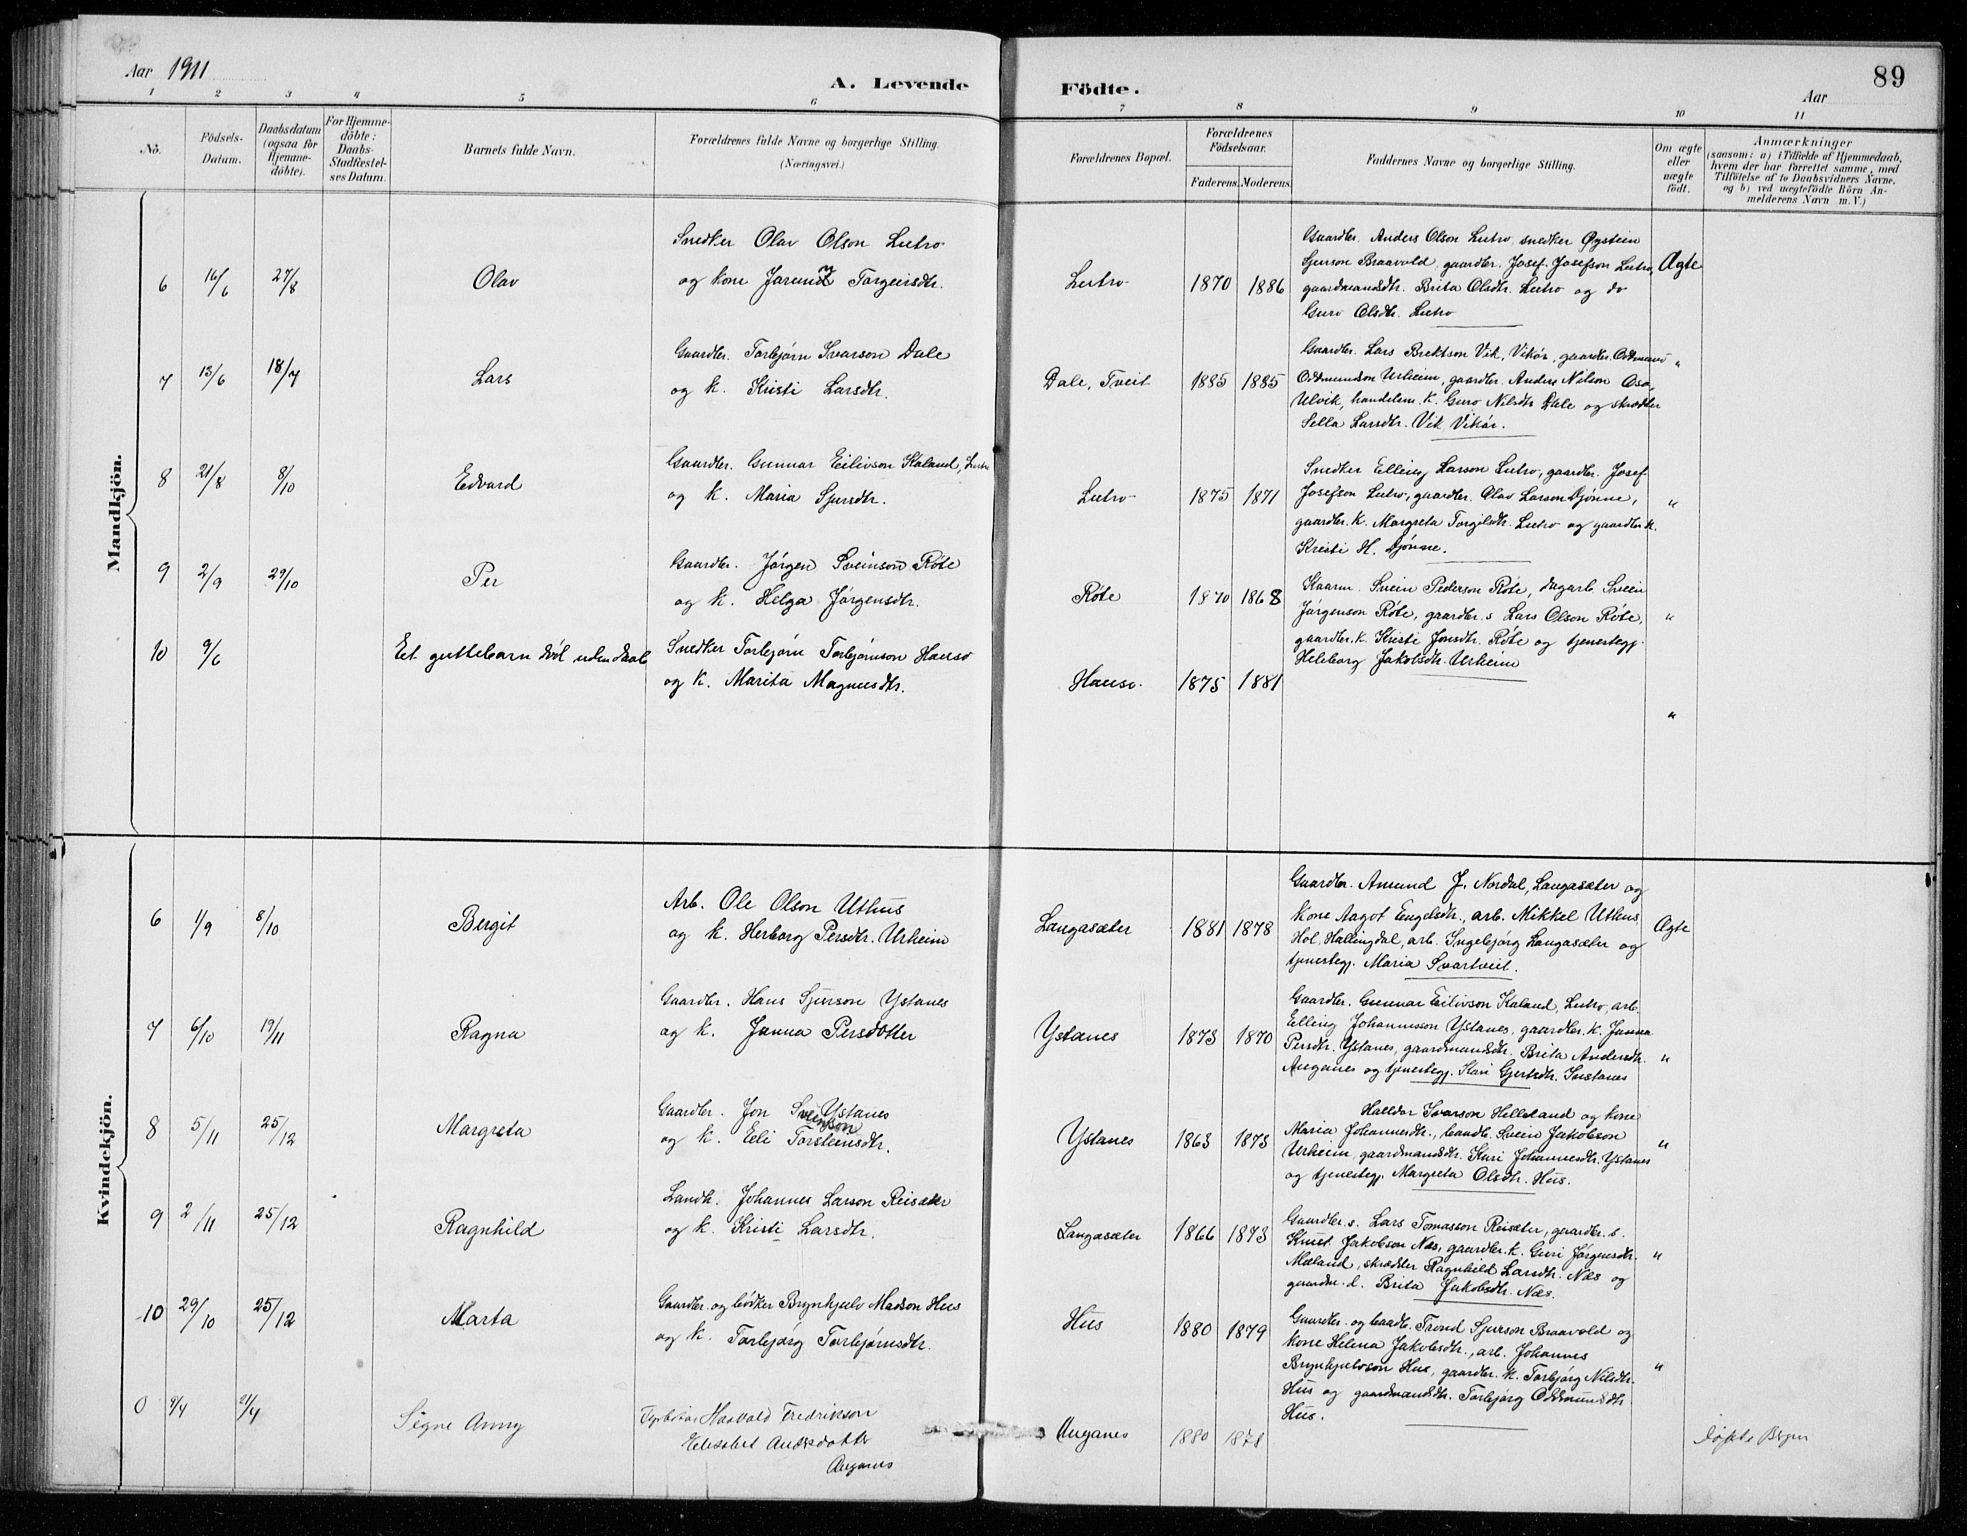 Aar 1911
A. Levende
Födte.
Aar
89
1 2 3 4 5 6 7 8 9 10 11
No.
Födsels-
Datum.
Daabsdatum
(ogsaa for
Hjemme-
döbte).
For Hjemme-
döbte:
Daabs-
Stadfæstel-
ses Datum.
Barnets fulde Navn.
Forældrenes fulde Navne og borgerlige Stilling.
(Næringsvei.)
Forældrenes Bopæl.
Forældrenes
Födselsaar.
Faderens. Moderens.
Faddernes Navne og borgerlige Stilling.
Om ægte
eller
uægte
födt.
Anmærkninger
(saasom: a) i Tilfælde af Hjemmedaab,
hvem der har forrettet samme, med
Tilföielse af to Daabsvidners Navne,
og b) ved uægtefödte Börn An-
melderens Navn m. V.)
Mandkjön.
6 16/6 27/8 Olav
Snedker Olav Olson Lutro
og kone Jorunn Torgeirsdtr.
Lutro 1870 1886
Gaardbr. Anders Olson Lutro, snedker Øystein
Sjurson Braavold, gaardbr. Josef Josefson Lutro,
gaardmandsdtr. Brita Olsdtr. Lutro og do
Guro Olsdtr. Lutro
Ægte
7 13/6 18/7 Lars
Gaardbr. Torbjørn Ivarson Dale
og K. Kristi Larsdtr.
Dale, Tveit 1885 1885
Gaardbr. Lars Brektson Vik, Vikør, gaardbr. Oddmund
Oddmundson Urheim, gaardbr. Anders Nilson Osa,
Ulvik, handelsm. K. Guro Nilsdtr. Dale og skrædder
Sella Larsdtr. Vik, Vikør.
"
8 21/8 8/10 Edvard
Gaardbr. Gunnar Eilivson Kaland, Lutro
og K. Maria Sjursdtr.
Lutro 1875 1871
Snedker Elling Larson Lutro, gaardbr. Josef
Josefson Lutro, gaardbr. Olav Larson Djønne,
gaardbr. K. Margreta Torgilsdtr. Lutro og gaardbr. K.
Kristi H. Djønne.
"
9 2/9 29/10 Per
Gaardbr. Jørgen Sveinson Røte
og K. Helga Jørgensdtr.
Røte 1870 1868
Kaarm. Svein Pederson Røte, dagarb. Svein
Jørgenson Røte, gaardbr. s Lars Olson Røte,
gaardbr. K. Kristi Jonsdtr. Røte og tjenestegj.
Helborg Jakobsdtr. Urheim
"
10 9/6 Eet guttebarn død uden daab
Snedker Torbjørn Torbjørnson Hauso
og K. Marita Magnusdtr.
Hauso. 1875 1881
"
Kvindekjön.
6 1/9 8/10 Bergit
Arb. Ole Olson Uthus
og K. Herborg Persdtr. Urheim
Langasæter 1881 1878
Gaardbr. Amund J. Nordal, Langasæter og
Kone Aagot Engelsdtr., arb. Mikkel Uthus,
Hol, Hallingdal, arb. Ingebjørg Langasæter og
tjenestegj. Maria Svartveit.
Ægte
7 6/10 19/11 Ragna
Gaardbr. Hans Sjurson Ystanes
og K. Janna Persdotter
Ystanes 1873 1870
Gaardbr. Gunnar Eilivson Kaland, Lutro, arb.
Elling Johannesson Ystanes, gaardbr. K. Janna
Persdtr. Ystanes, gaardmandsdtr. Brita Andersdtr.
Auganes og tjenestegj. Kari Gjertsdtr. Instanes
"
8 5/11 25/12 Margreta
Gaardbr. Jon Sveinson Ystanes
og K. Eli Torsteinsdtr.
Ystanes 1863 1873
Halldor Ivarson Helleland og kone
Maria Johannesdtr., baadb. Svein Jakobson
Urheim, gaardmandsdtr. Kari Johannesdtr. Ystanes
og tjenestegj. Margreta Olsdtr. Hus.
"
9 2/11 25/12 Ragnhild
Landh. Johannes Larson Reisæter
og K. Kristi Larsdtr.
Langasæter 1866 1873
Gaardbr. s. Lars Tomasson Reisæter, gaardbr. s.
Knut Jakobson Næs, gaardbr. K. Guri Jørgensdtr.
Mæland, skrædder Ragnhild Larsdtr. Næs og
gaardm. d. Brita Jakobsdtr. Næs.
"
10 29/10 25/12 Marta
Gaardbr. og bødker Brynhjulv Madson Hus
og K. Torbjørg Torbjørnsdtr.
Hus 1880 1879
Gaardbr. og baadb. Trond Sjurson Braavold og
kone Helena Jakobsdtr., arb. Johannes
Brynhjulvson Hus, gaardbr. K. Torbjørg Nilsdtr.
Hus og gaardmandsdtr. Torbjørg Oddmundsdtr.
Hus.
"
0 9/4 21/4 Signe Anny
Harald Fredrikson
Elisabet Andersdotter
Auganes
Auganes 1880 1878